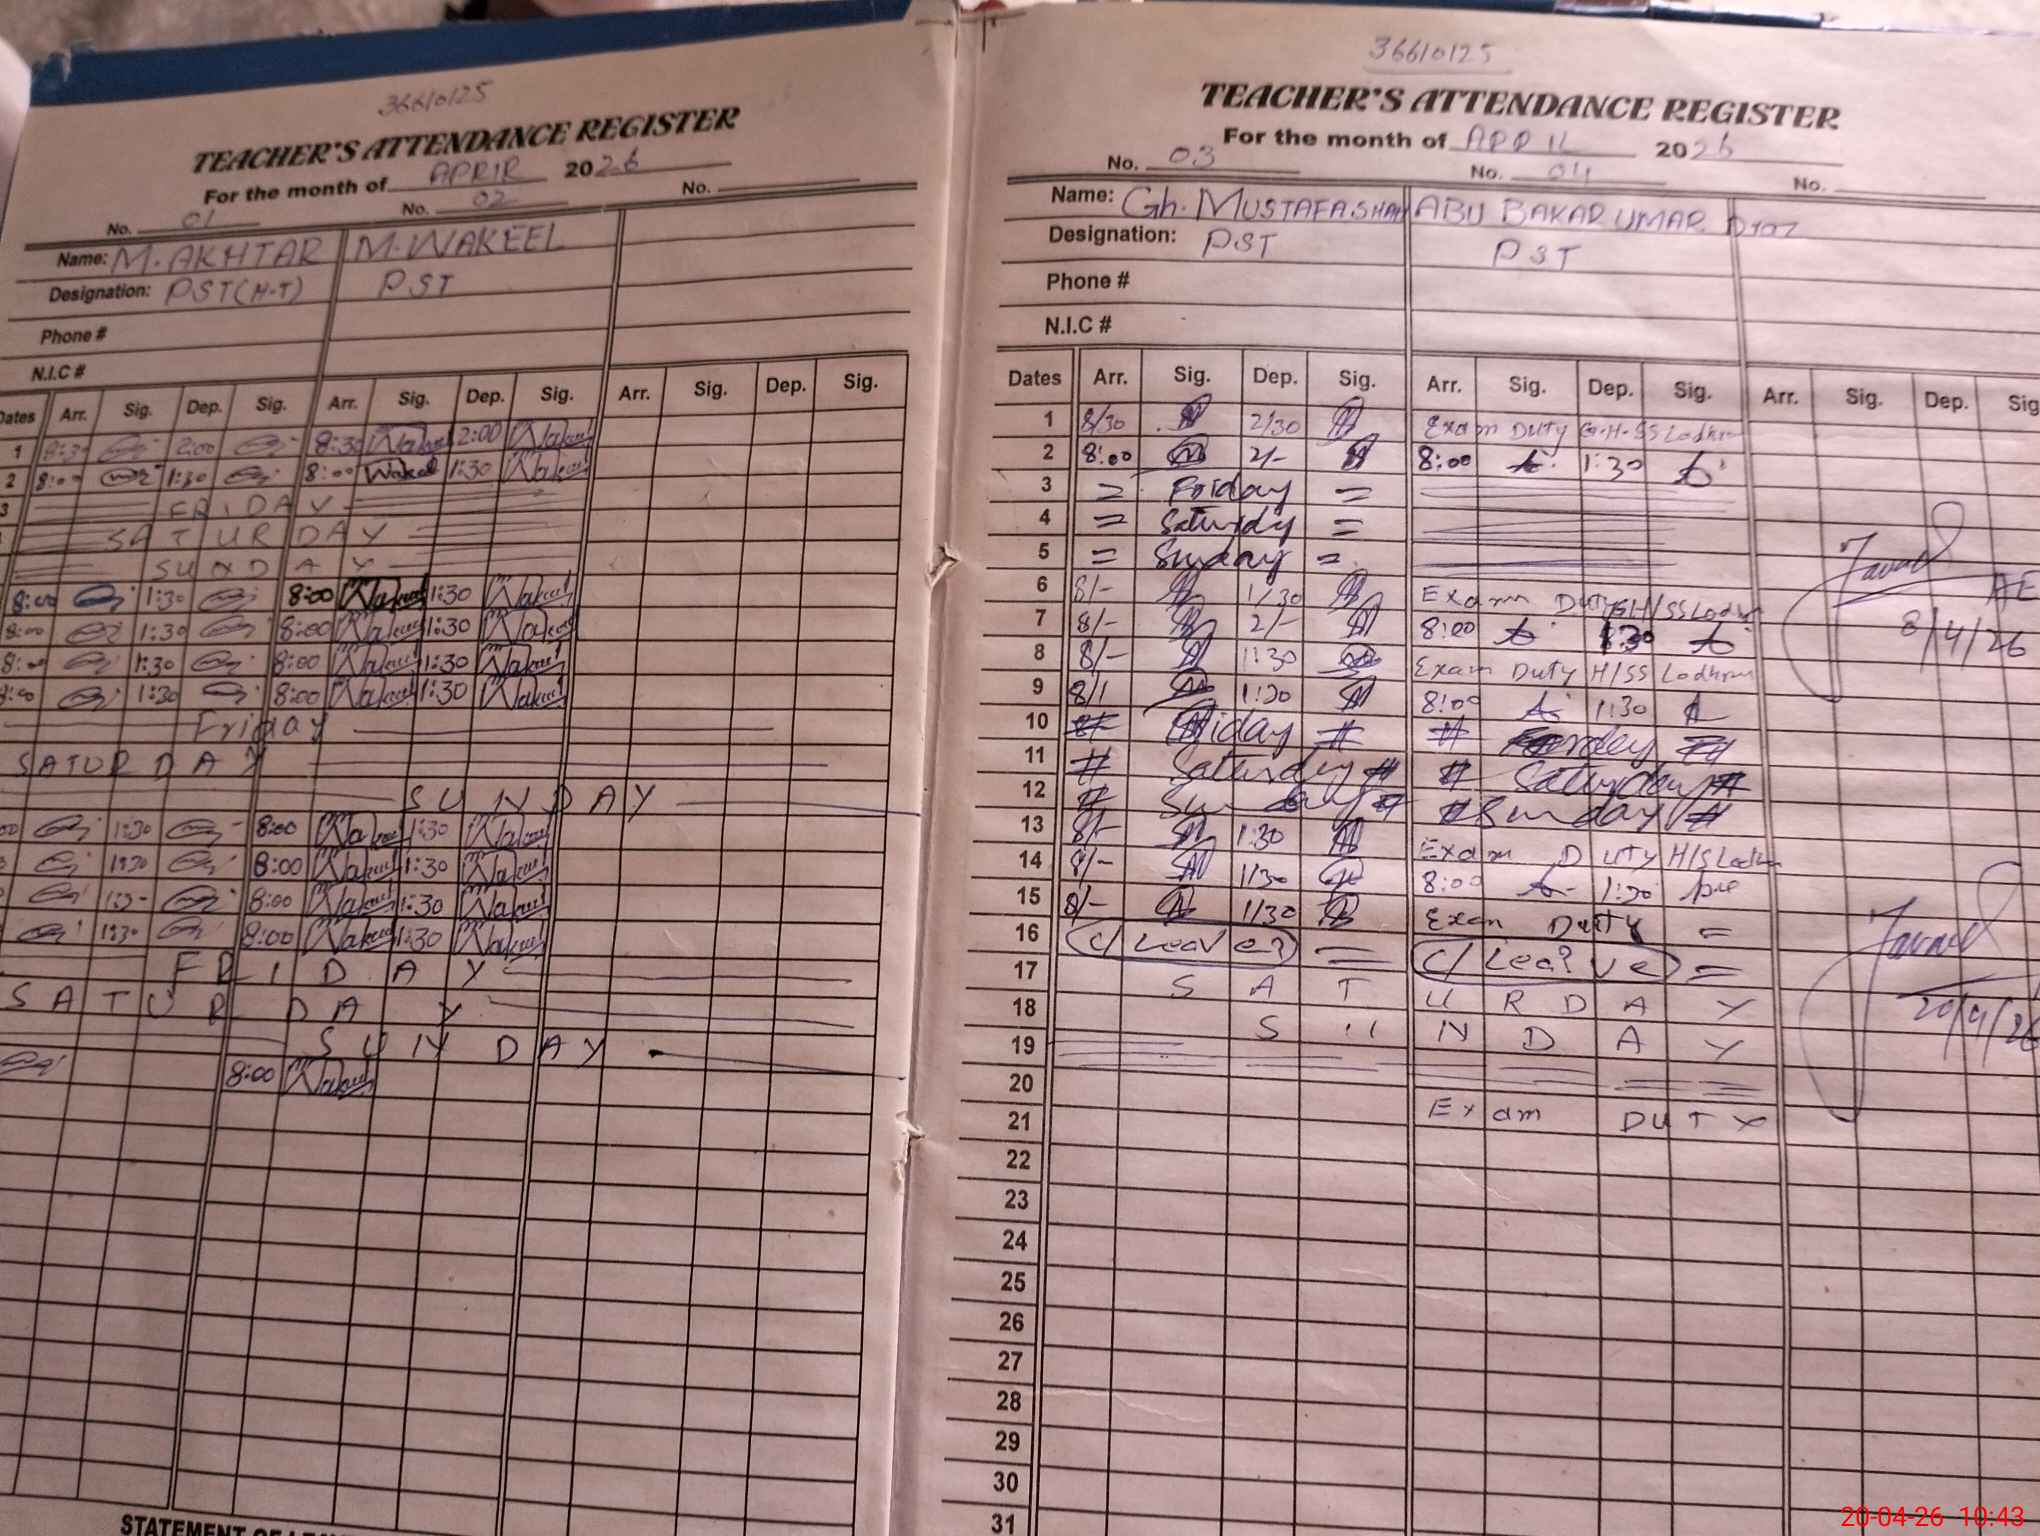 36610125
TEACHER'S ATTENDANCE REGISTER
For the month of APRIR 2026
No. 01 No. 02 No.
Name: M. AKHTAR M. WAKEEL
Designation: PST(H-T) PST
Phone #
N.I.C #
Dates Arr. Sig. Dep. Sig. Arr. Sig. Dep. Sig. Arr. Sig. Dep. Sig.
1 8:30 2:00 8:30 Wakeel 2:00 Wakeel
2 8:00 1:30 8:00 Wakeel 1:30 Wakeel
3 FRIDAY
SATURDAY
SUNDAY
8:00 1:30 8:00 Wakeel 1:30 Wakeel
8:00 1:30 8:00 Wakeel 1:30 Wakeel
8:00 1:30 8:00 Wakeel 1:30 Wakeel
8:00 1:30 8:00 Wakeel 1:30 Wakeel
Friday
SATURDAY
SUNDAY
1:30 8:00 Wakeel 1:30 Wakeel
1:30 8:00 Wakeel 1:30 Wakeel
1:30 8:00 Wakeel 1:30 Wakeel
1:30 8:00 Wakeel 1:30 Wakeel
FRIDAY
SATURDAY
SUNDAY
8:00 Wakeel
36610125
TEACHER'S ATTENDANCE REGISTER
For the month of APRIL 2026
No. 03 No. 04 No.
Name: Gh. MUSTAFA SHAH ABU BAKAR UMAR
Designation: PST PST
Phone #
N.I.C #
Dates Arr. Sig. Dep. Sig. Arr. Sig. Dep. Sig. Arr. Sig. Dep. Sig
1 8/30 2/30 Exam Duty G.H.SS Lodhran
2 8:00 2/- 8:00 1:30
3 = Friday =
4 = Saturday =
5 = Sunday =
6 8/- 1/30 Exam Duty GH/SS Lodhran
7 8/- 2/- 8:00 1:30
8 8/- 1:30 Exam Duty H/SS Lodhran
9 8/1 1:30 8:00 1:30
10 # Friday # #
11 # Saturday # # Saturday #
12 # Sunday # # Sunday #
13 8/- 1:30 Exam DUTY H/S Lodhran
14 8/- 1/30 8:00 1:30
15 8/- 1/30 Exam Duty =
16 C/Leave = C/Leave =
17 SATURDAY
18 SUNDAY
19
20
21 Exam DUTY
22
23
24
25
26
27
28
29
30
31
Javed
8/4/26
Javed
20/4/26
20-04-26 10:43